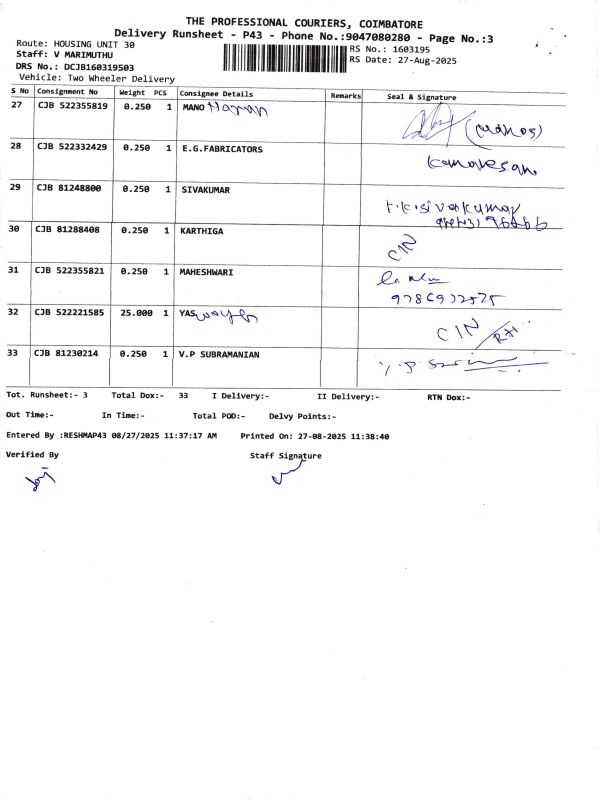 THE PROFESSIONAL COURIERS, COIMBATORE
Delivery Runsheet - P43 - Phone No.:9047080280 - Page No.:3
Route: HOUSING UNIT 30
RS No.: 1603195
Staff: V MARIMUTHU
RS Date: 27-Aug-2025
DRS No.: DCJB160319503
Vehicle: Two Wheeler Delivery
S No Consignment No Weight PCS Consignee Details Remarks Seal & Signature
27 CJB 522355819 0.250 1 MANO
28 CJB 522332429 0.250 1 E.G.FABRICATORS
29 CJB 81248800 0.250 1 SIVAKUMAR
30 CJB 81288408 0.250 1 KARTHIGA CIN
31 CJB 522355821 0.250 1 MAHESHWARI
32 CJB 522221585 25.000 1 YAS CIN
33 CJB 81230214 0.250 1 V.P SUBRAMANIAN
Tot. Runsheet:- 3 Total Dox:- 33 I Delivery:- II Delivery:- RTN Dox:-
Out Time:- In Time:- Total POD:- Delvy Points:-
Entered By :RESHMAP43 08/27/2025 11:37:17 AM Printed On: 27-08-2025 11:38:40
Verified By Staff Signature